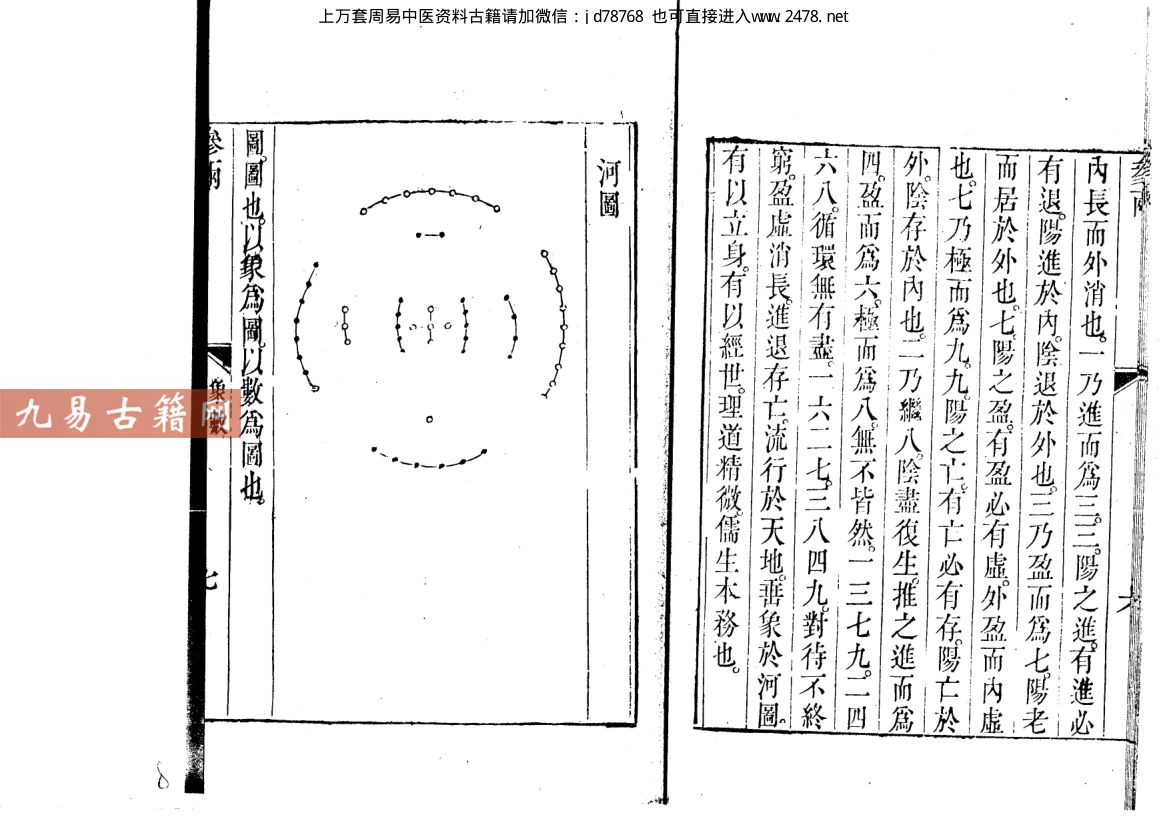 上万套周易中医资料古籍请加微信：jd78768 也可直接进入www.2478.net
內長而外消也。一乃進而爲三。三。陽之進。有進必
有退。陽進於內。陰退於外也。三乃盈而爲七。陽老
而居於外也。七。陽之盈。有盈必有虛。外盈而內虛
也。七乃極而爲九。九。陽之亡。有亡必有存。陽亡於
外。陰存於內也。二乃繼八。陰盡復生。推之進而爲
四。盈而爲六。極而爲八。無不皆然。一三七九。二四
六八。循環無有盡。一六二七。三八四九。對待不終
窮。盈虛消長。進退存亡。流行於天地。垂象於河圖。
有以立身。有以經世。理道精微。儒生本務也。
六
河圖
圖。圖也。以象爲圖。以數爲圖也。
參兩
象數
七
九易古籍网
8